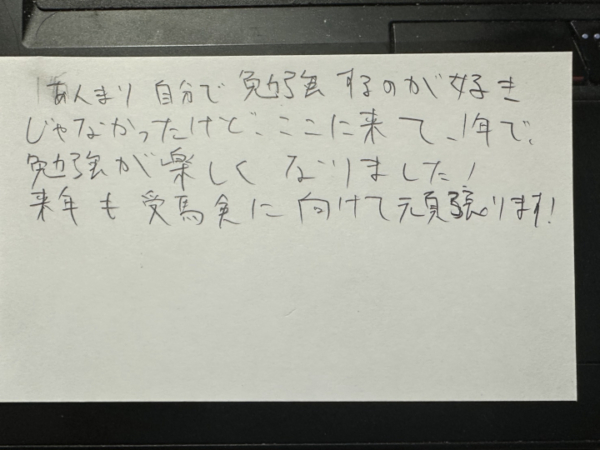 あんまり自分で勉強するのが好き
じゃなかったけど、ここに来て、1年で、
勉強が楽しくなりました!
来年も受験に向けて頑張ります!